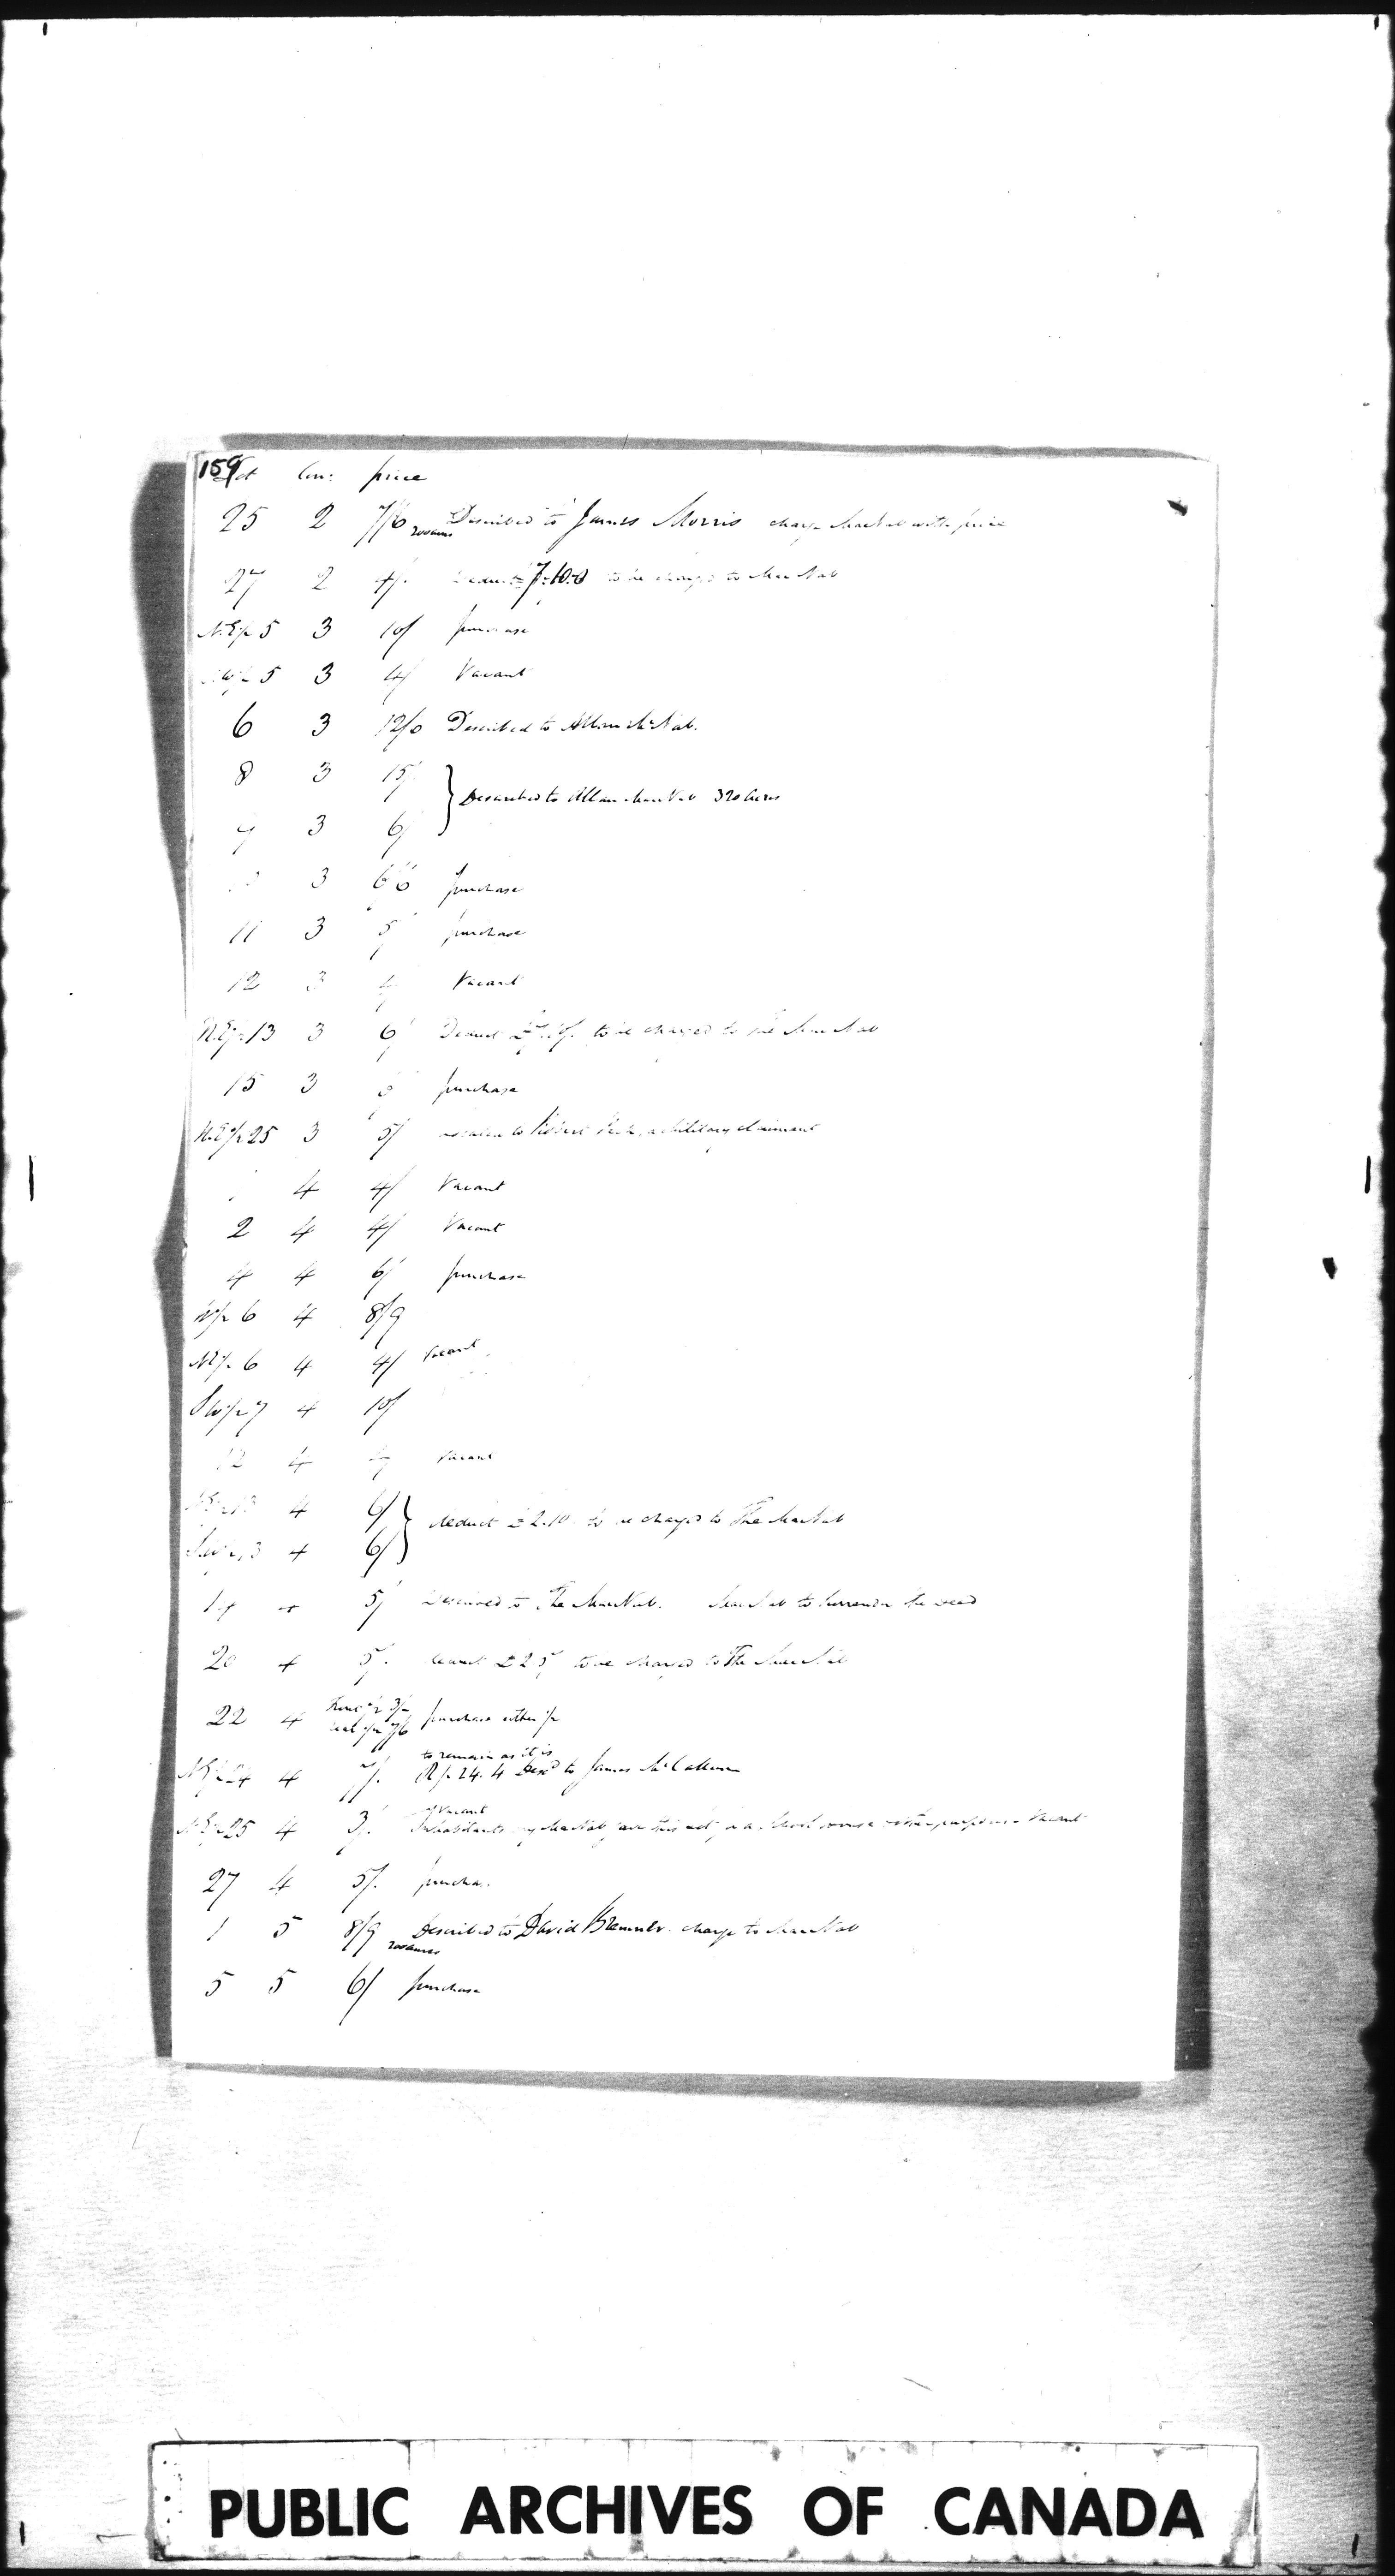 159
Lot Con: price
25 2 7/6 200 acres Described to James Morris charge MacNab with price
27 2 4/. Deduct 7.10.0 to be charged to MacNab
N.E½ 5 3 10/ purchase
5 3 4/ Vacant
6 3 12/6 Described to Allan McNab.
8 3 15/ Described to Allan MacNab 320 Acres
9 3 6/
3 6/6 purchase
11 3 5/ purchase
12 3 4/ Vacant
N.E½ 13 3 6/ Deduct to be charged to The MacNab
15 3 purchase
N.E½ 25 3 5/ located to Robert a Military claimant
4 4/ Vacant
2 4 4/ Vacant
4 4 6/ purchase
W½ 6 4 8/9
NE½ 6 4 4/ Vacant
SW½ 7 4 10/
12 4 Vacant
4 6/ deduct £2.10. to be charged to The MacNab
SW½ 13 4 6/
14 4 5/ Described to The MacNab. MacNab to surrender the deed
20 4 5/. deduct £25 to be charged to The MacNab
22 4 Front ½ 3/- rear ½ 7/6 purchase either ½
to remain as it is
24 4 7/. R½ 24.4 Desd to James McCallum
Vacant
N.E½ 25 4 3/. Inhabitants say MacNab gave this lot for a School house other purposes Vacant
27 4 5/. purcha.
1 5 8/9 200 acres Described to David Bremner. charge to MacNab
5 5 6/ purchase
PUBLIC ARCHIVES OF CANADA